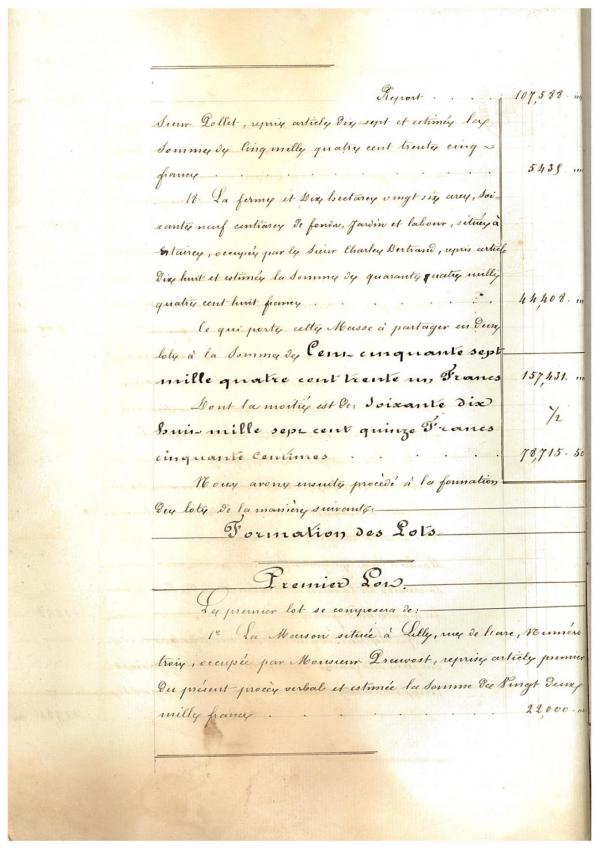 Report . . . . 107,588. "
Sieur Pollet, repris article dix sept et estimée la
Somme de Cinq mille quatre cent trente cinq
francs . . . . . . . . 5435 "
18. La ferme et Dix hectares vingt six ares, Soi-
xante neuf centiares de fonds, Jardin et labour, situées à
Estaires, occupée par le Sieur Charles Bertrand, repris article
Dix huit et estimée la Somme de quarante quatre mille
quatre cent huit francs . . . . . 44,408. "
Ce qui porte cette Masse à partager en deux
lots à la Somme de Cent cinquante sept
mille quatre cent trente un Francs 157,431. "
Dont la moitié est de: Soixante dix 1/2
huit mille sept cent quinze Francs
cinquante centimes . . . . . 78,715. 50
Nous avons ensuite procédé à la formation
des lots de la manière suivante:
Formation des Lots
Premier Lot.
Le premier lot se composera de:
1° La Maison située à Lille, rue de , Numéro
trois, occupée par Monsieur Prevvost, reprise article premier
du présent procès verbal et estimée la Somme de Vingt deux
mille francs . . . . . . . 22,000. "